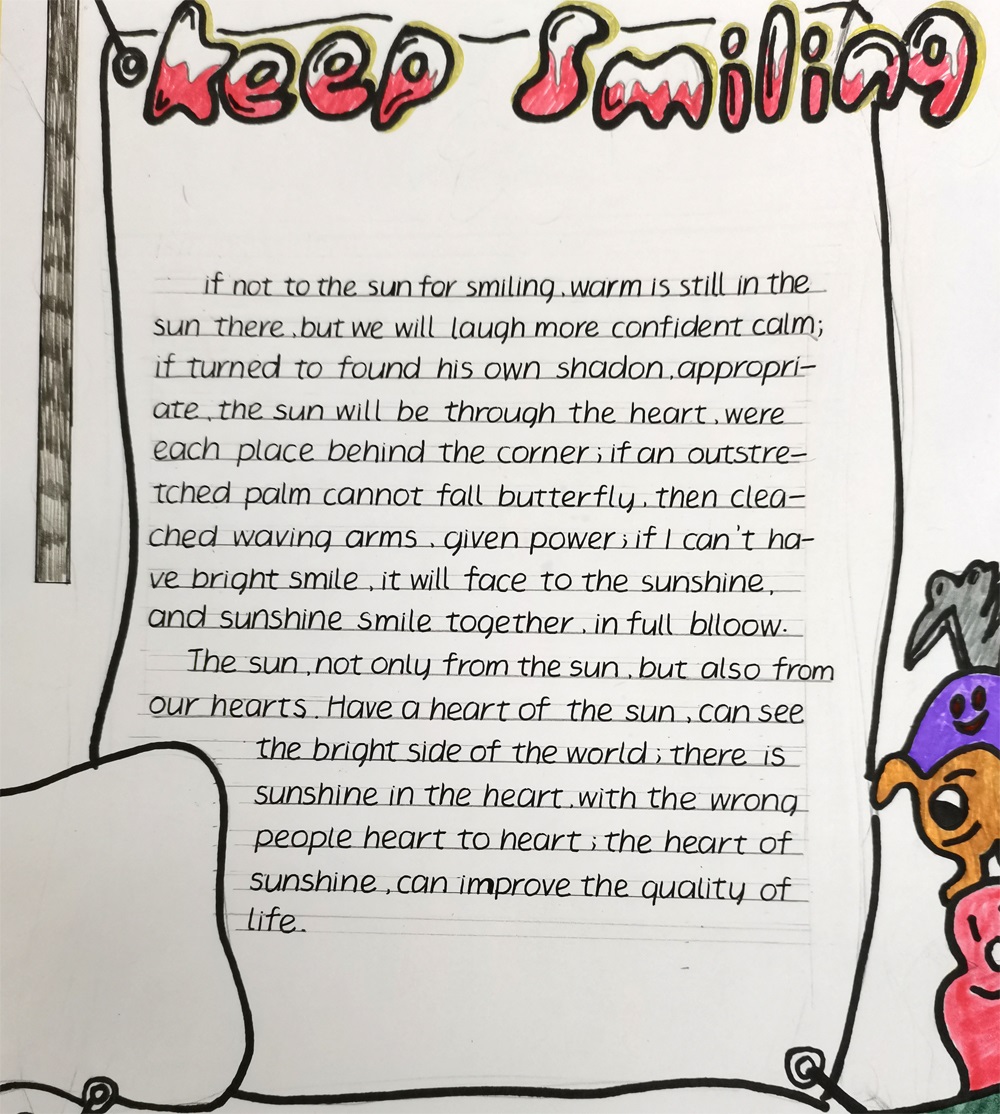 keep Smiling
if not to the sun for smiling, warm is still in the
sun there, but we will laugh more confident calm;
if turned to found his own shadon, appropri-
ate, the sun will be through the heart, were
each place behind the corner; if an outstre-
tched palm cannot fall butterfly, then clea-
ched waving arms, given power; if I can't ha-
ve bright smile, it will face to the sunshine,
and sunshine smile together, in full blloow.
The sun, not only from the sun, but also from
our hearts. Have a heart of the sun, can see
the bright side of the world; there is
sunshine in the heart, with the wrong
people heart to heart; the heart of
sunshine, can improve the quality of
life.